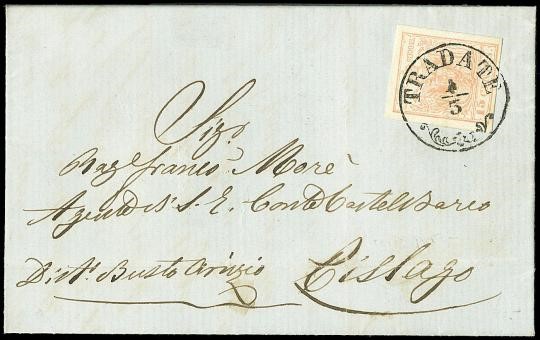 TRADATE
4/5
15
Sigr.
Rag. Franco Morè
Agente di S. E. Conte Castelbarco
Dist. Busto Arsizio Cislago